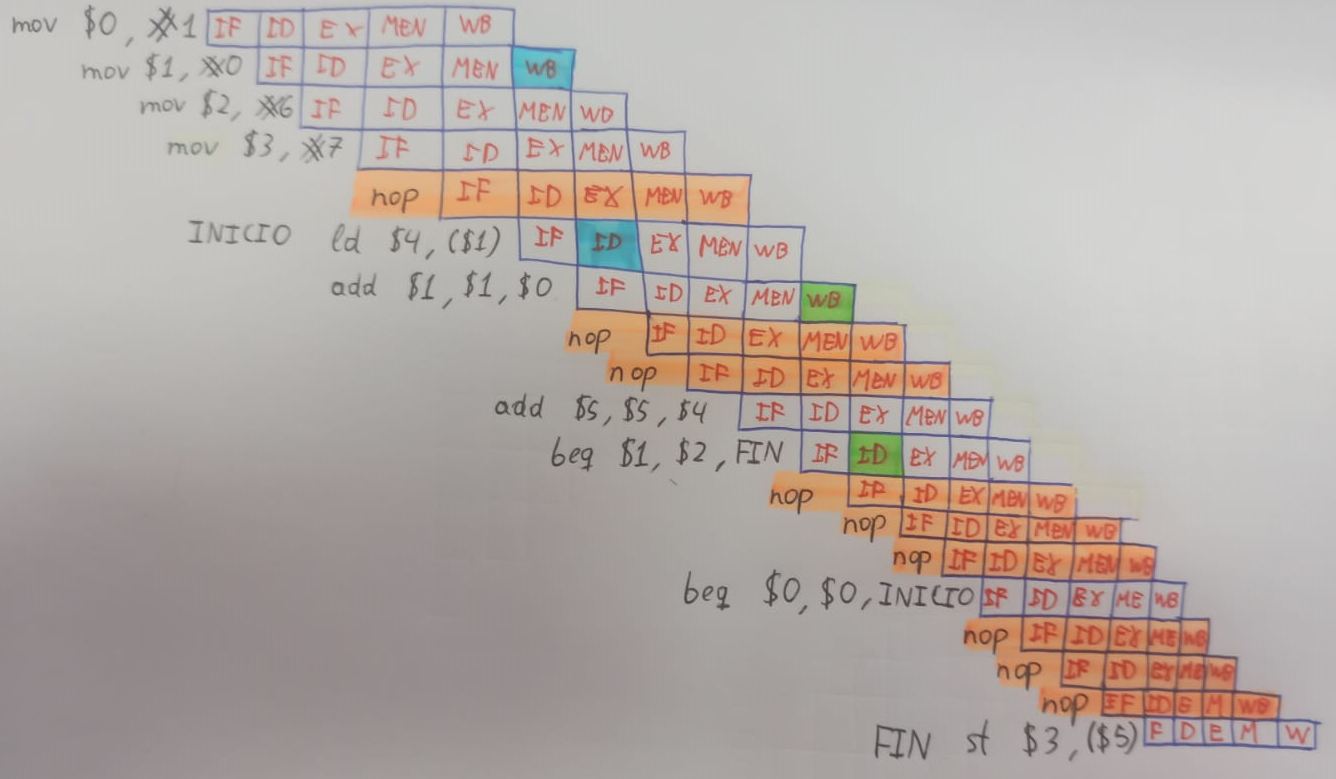 mov $0, #1 IF ID EX MEN WB
mov $1, #0 IF ID EX MEN WB
mov $2, #6 IF ID EX MEN WD
mov $3, #7 IF ID EX MEN WB
nop IF ID EX MEN WB
INICIO ld $4, ($1) IF ID EX MEN WB
add $1, $1, $0 IF ID EX MEN WB
nop IF ID EX MEN WB
nop IF ID EX MEN WB
add $5, $5, $4 IF ID EX MEN WB
beq $1, $2, FIN IF ID EX MEN WB
nop IF ID EX MEN WB
nop IF ID EX MEN WB
nop IF ID EX MEN WB
beq $0, $0, INICIO IF ID EX ME WB
nop IF ID EX ME WB
nop IF ID EX ME WB
nop IF ID E M WB
FIN st $3, ($5) F D E M W